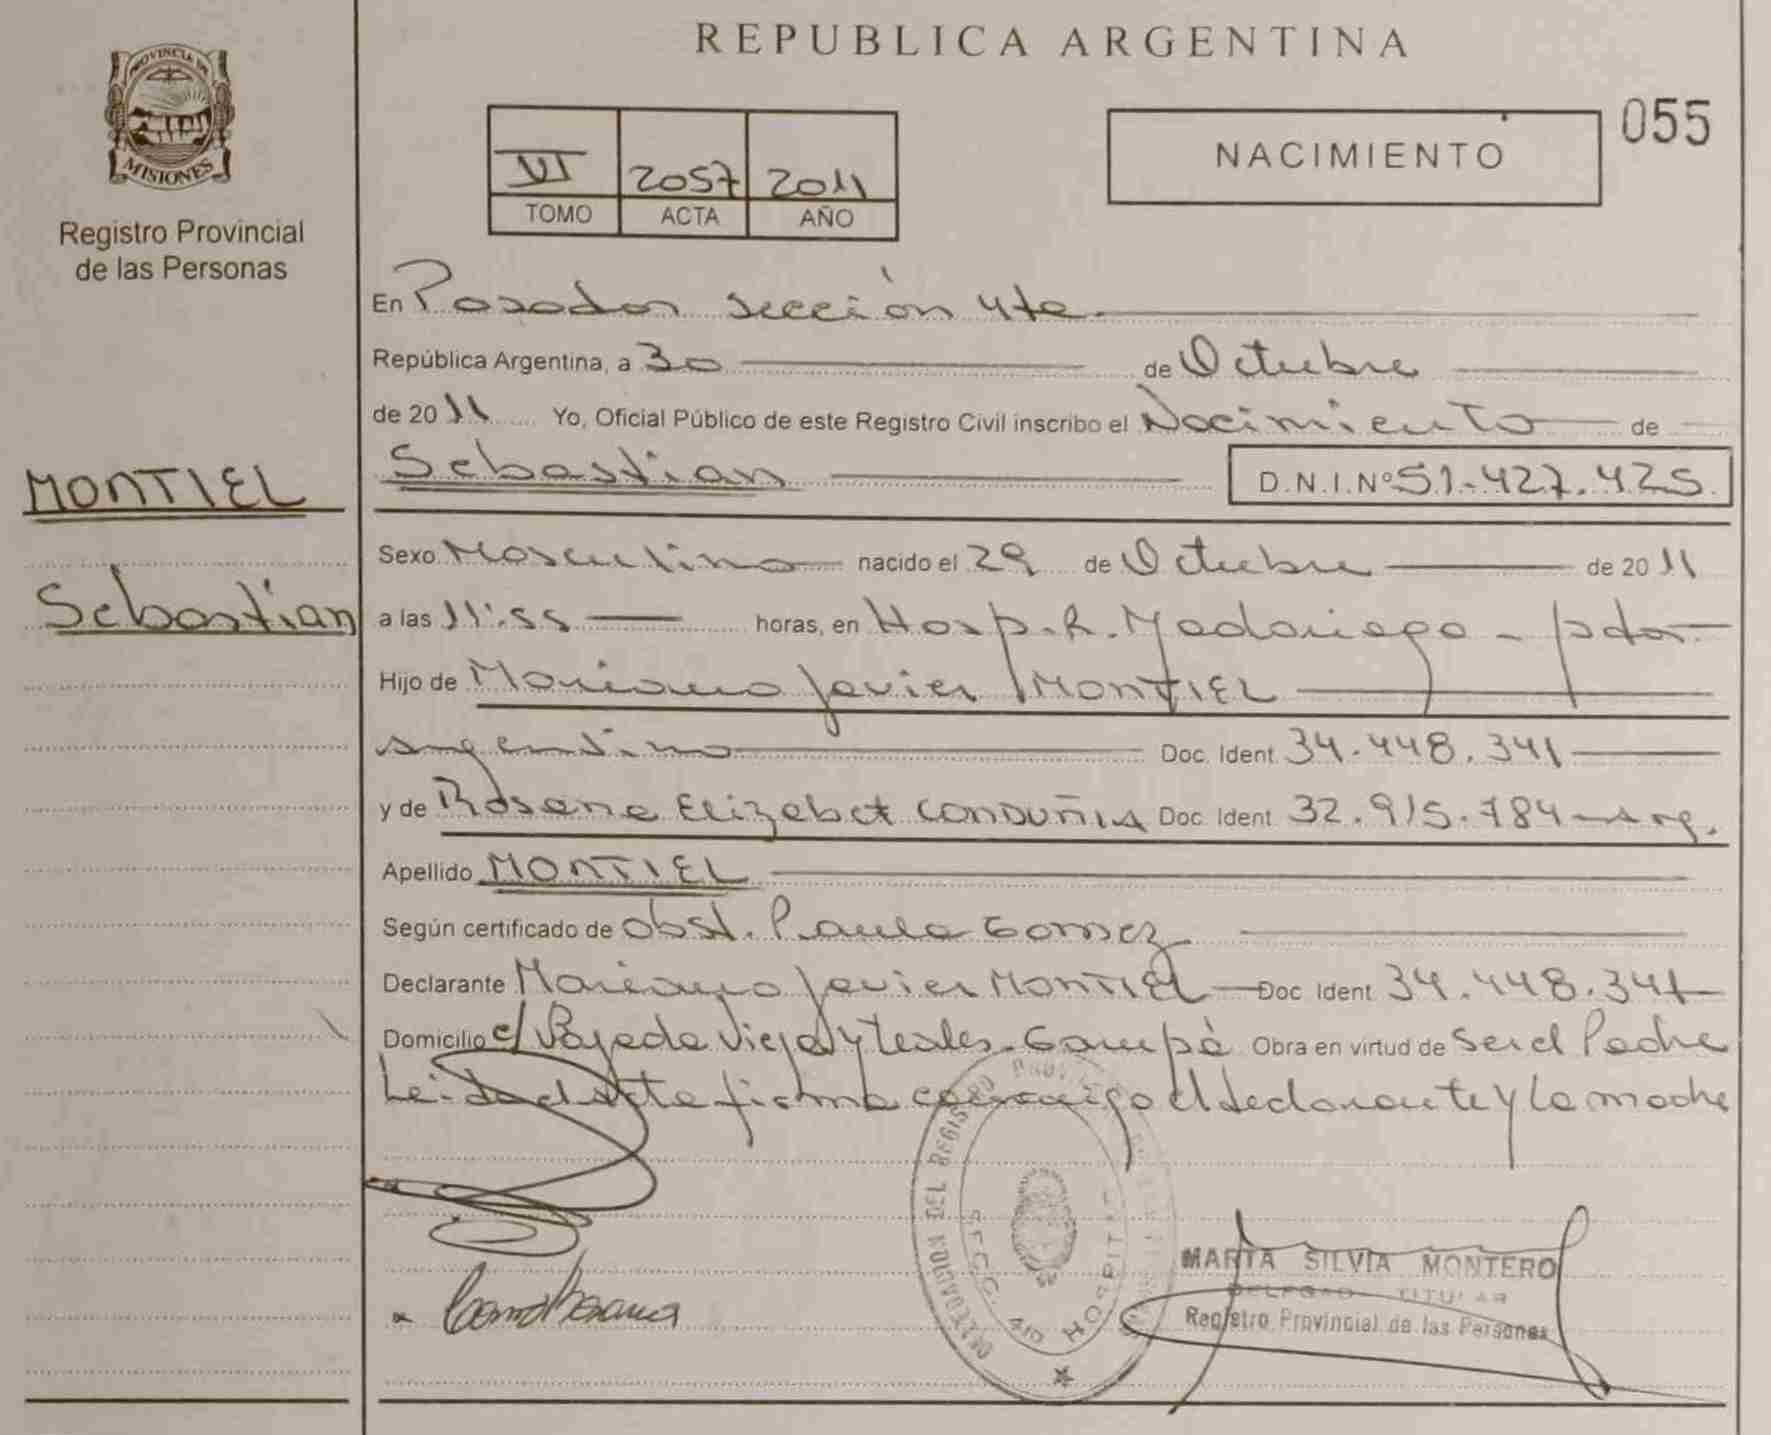 PROVINCIA DE
MISIONES
Registro Provincial
de las Personas
MONTIEL
Sebastian
REPUBLICA ARGENTINA
VI 2057 2011
TOMO ACTA AÑO
NACIMIENTO
055
En Posadas sección 4ta.
República Argentina, a 30 de Octubre
de 2011 Yo, Oficial Público de este Registro Civil inscribo el Nacimiento de
Sebastian D.N.I.Nº 51.427.425.
Sexo Masculino nacido el 29 de Octubre de 2011
a las 11:55 horas, en Hosp. R. Madariaga - pdas
Hijo de Mariano Javier MONTIEL
argentino Doc. Ident. 34.448.341
y de Rosana Elizabet CONDUÑIA Doc. Ident. 32.915.784 - Arg.
Apellido MONTIEL
Según certificado de obst. Paula Gomez
Declarante Mariano Javier MONTIEL Doc. Ident. 34.448.341
Domicilio c/ Vieja y Garupá Obra en virtud de Ser el Padre
Leida el acta firma conmigo el declarante y la madre
DELEGACION DEL REGISTRO
SECC. 4ta HOSPITAL
MARTA SILVIA MONTERO
DELEGADA TITULAR
Registro Provincial de las Personas